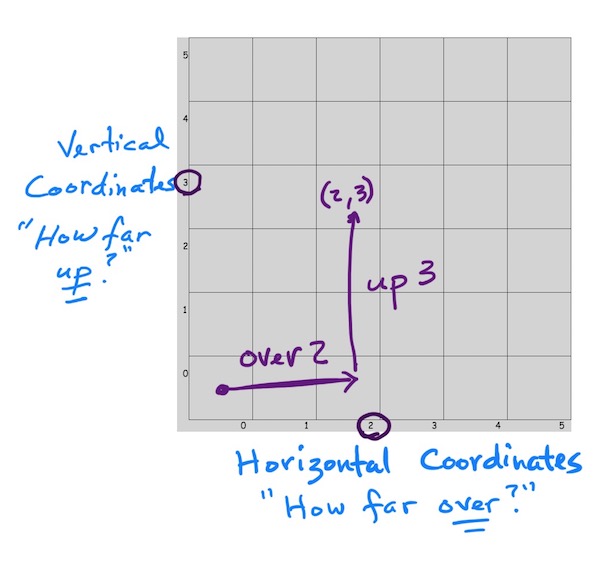 5
4
Vertical
Coordinates 3
(2,3)
"How far
up?"
2
up 3
1
over 2
0
0 1 2 3 4 5
Horizontal Coordinates
"How far over?"